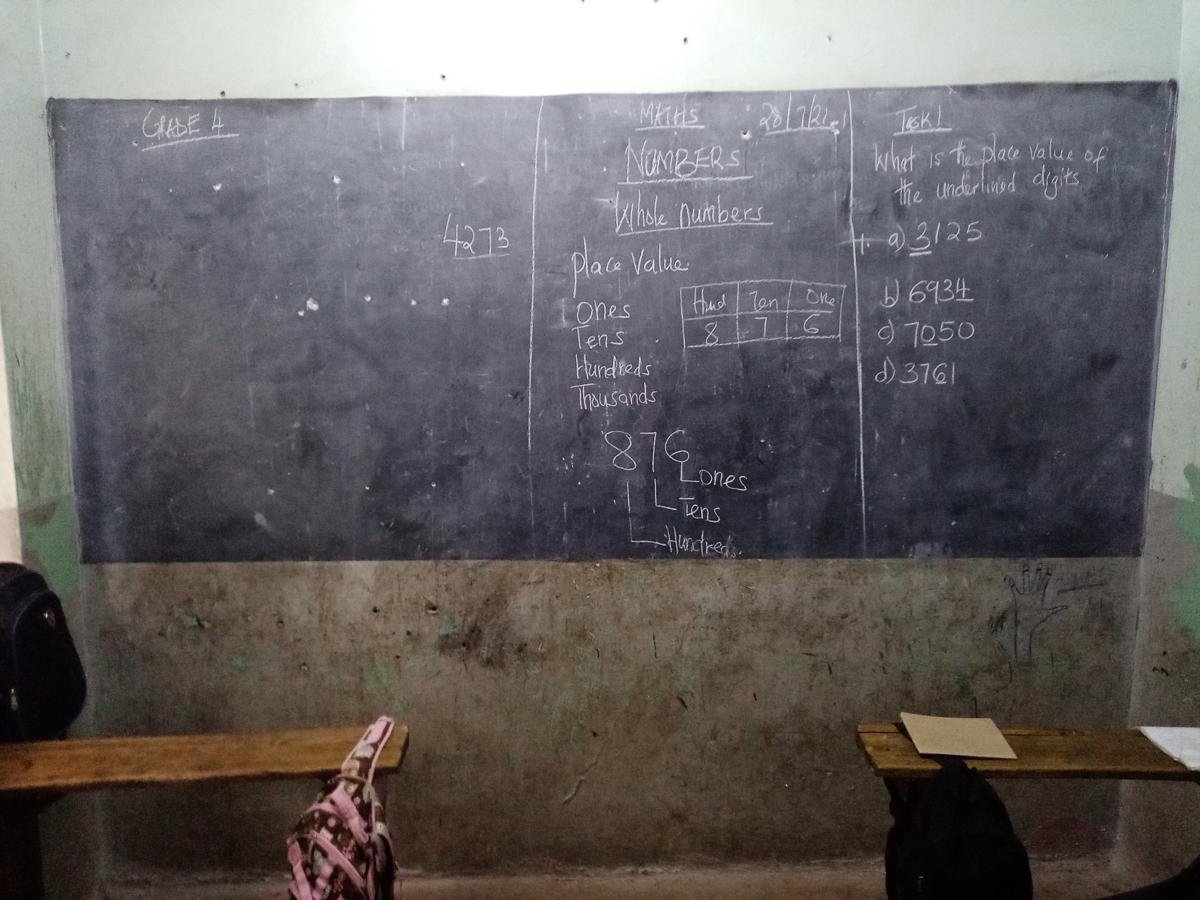 GRADE 4
4273
MATHS 28/7/21
NUMBERS
Whole Numbers
Place Value
Ones
Tens
Hundreds
Thousands
Hund Ten One
8 7 6
876
ones
Tens
Hundreds.
Task 1
What is the place value of
the underlined digits
1. a) 3125
b) 6934
c) 7050
d) 3761